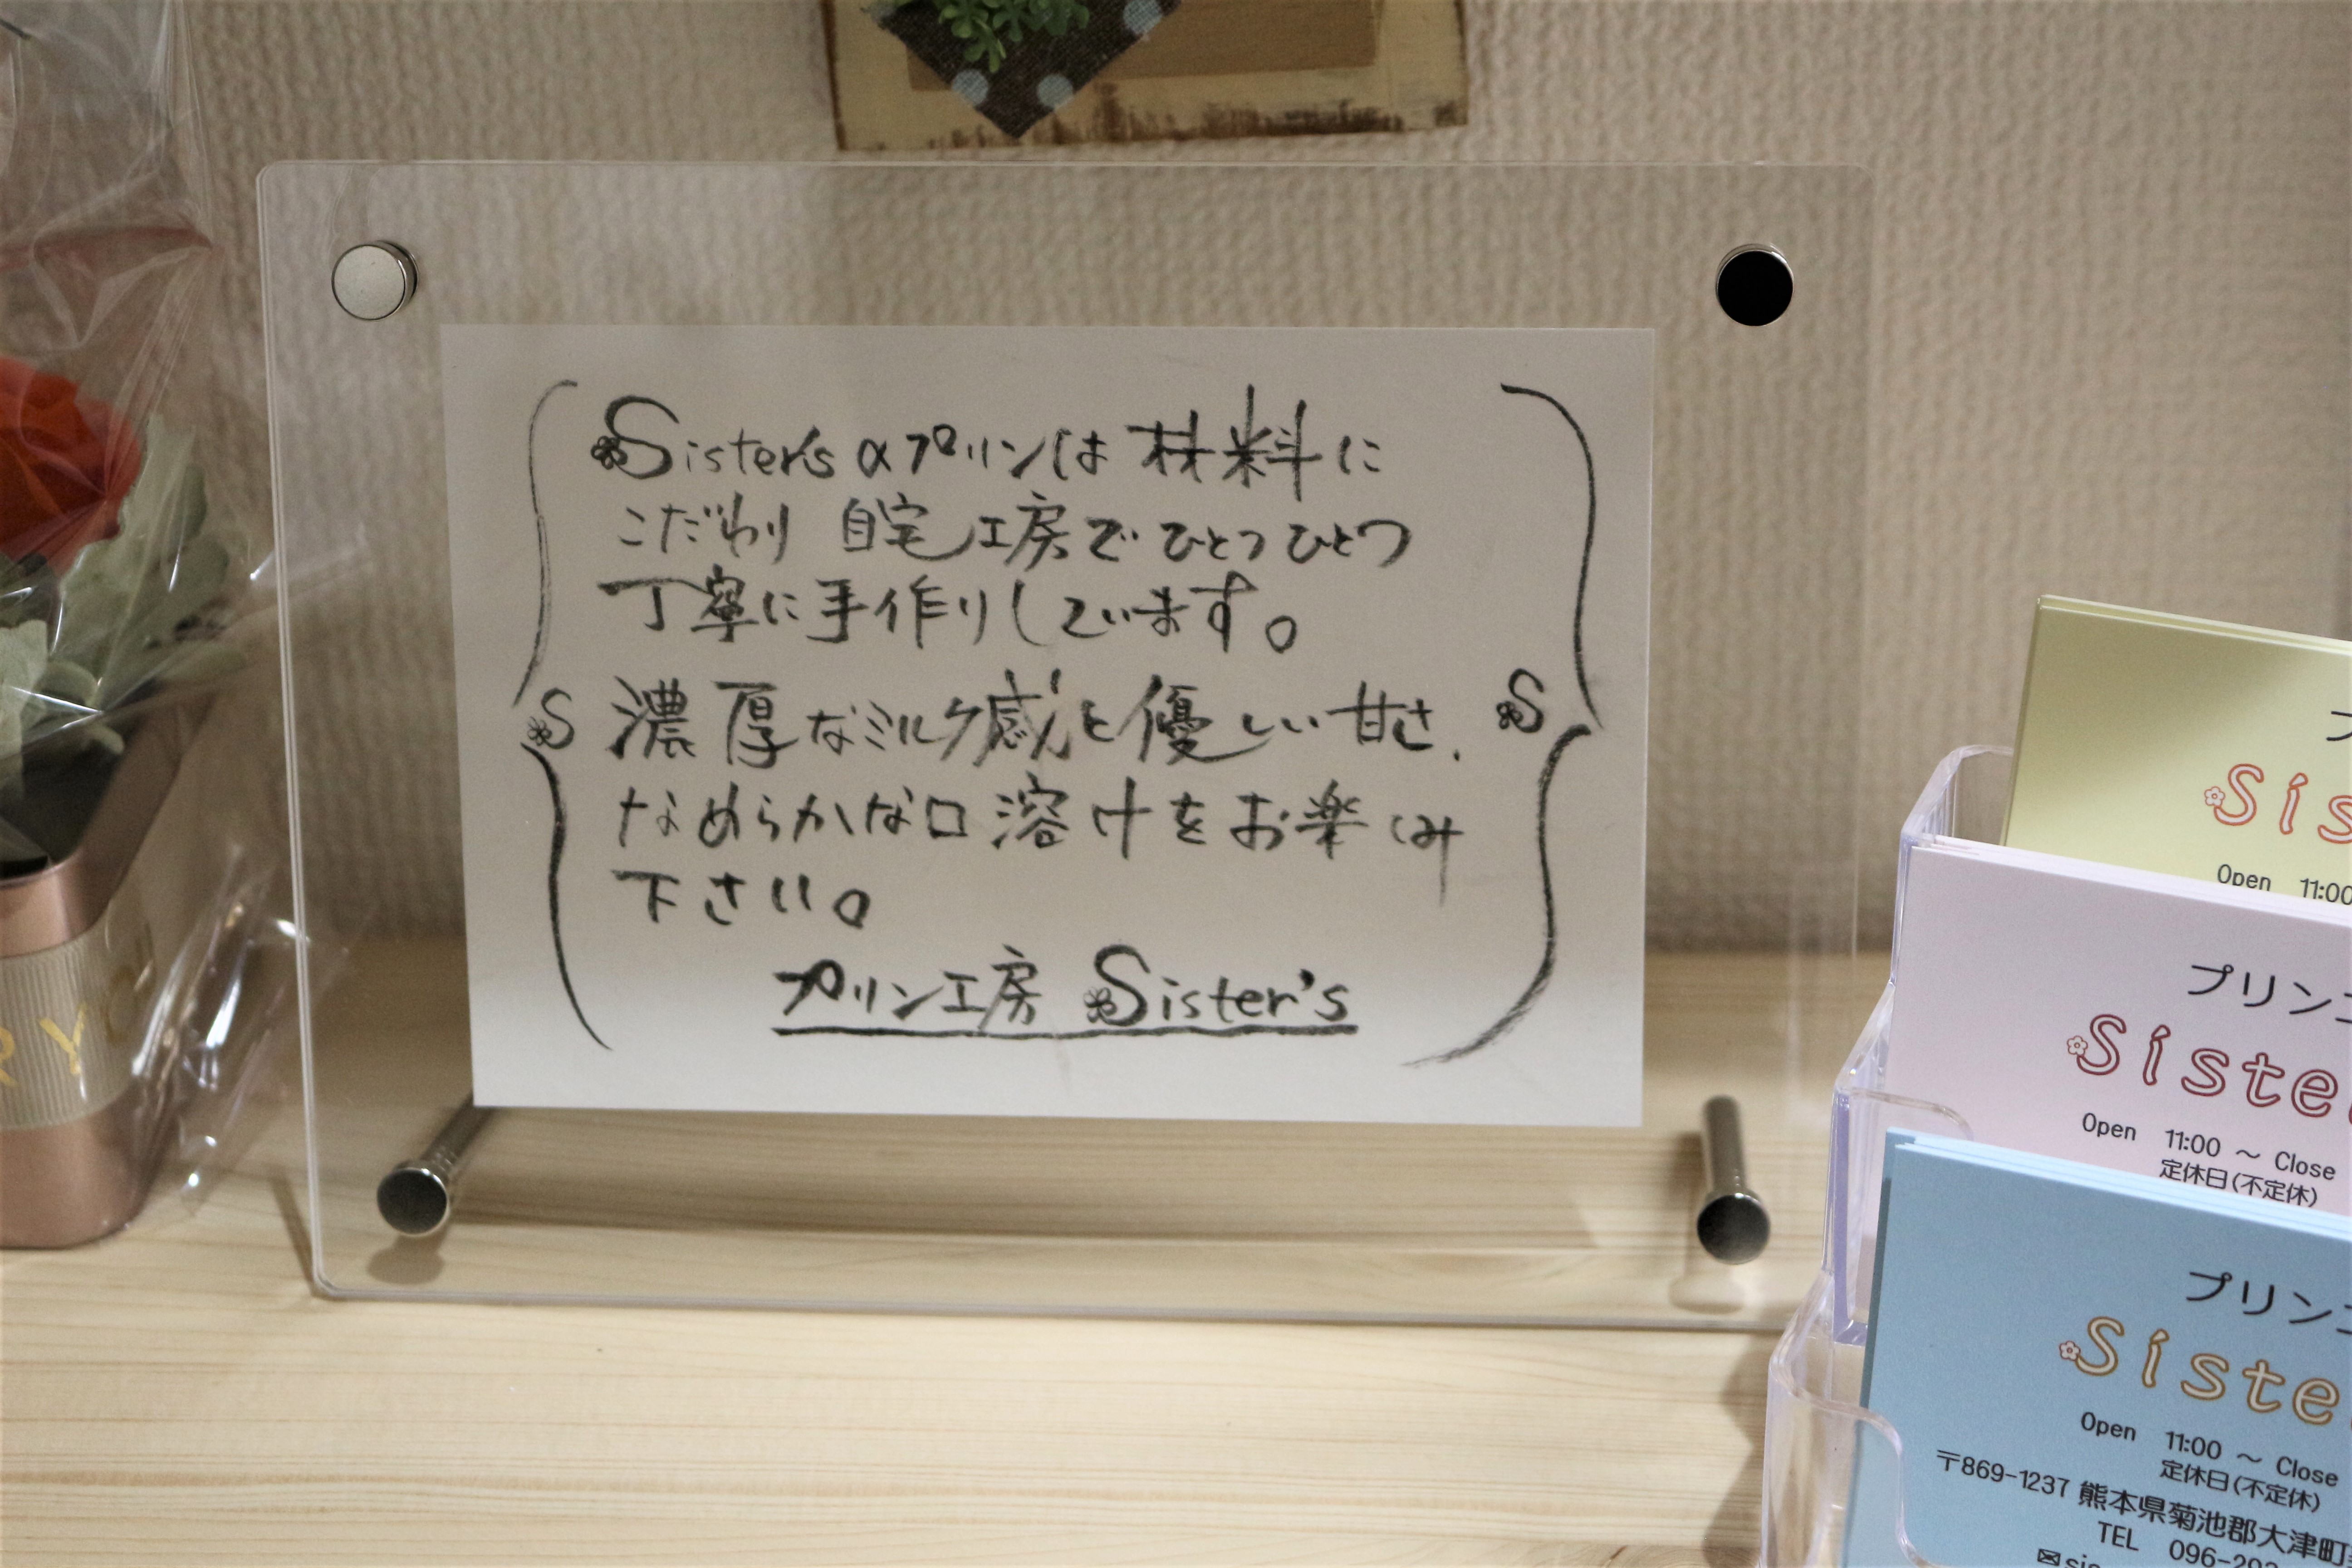 Sister's のプリンは 材料に
こだわり 自宅工房で ひとつひとつ
丁寧に手作りしています。
S 濃厚なミルク感と優しい甘さ、 S
なめらかな口溶けをお楽しみ
下さい。
プリン工房 Sister's
プ
Sis
Open 11:00
プリン工
Siste
Open 11:00 ～ Close
定休日(不定休)
プリン工
Siste
Open 11:00 ～ Close
定休日(不定休)
〒869-1237 熊本県菊池郡大津町
TEL 096-2
✉sis
RY